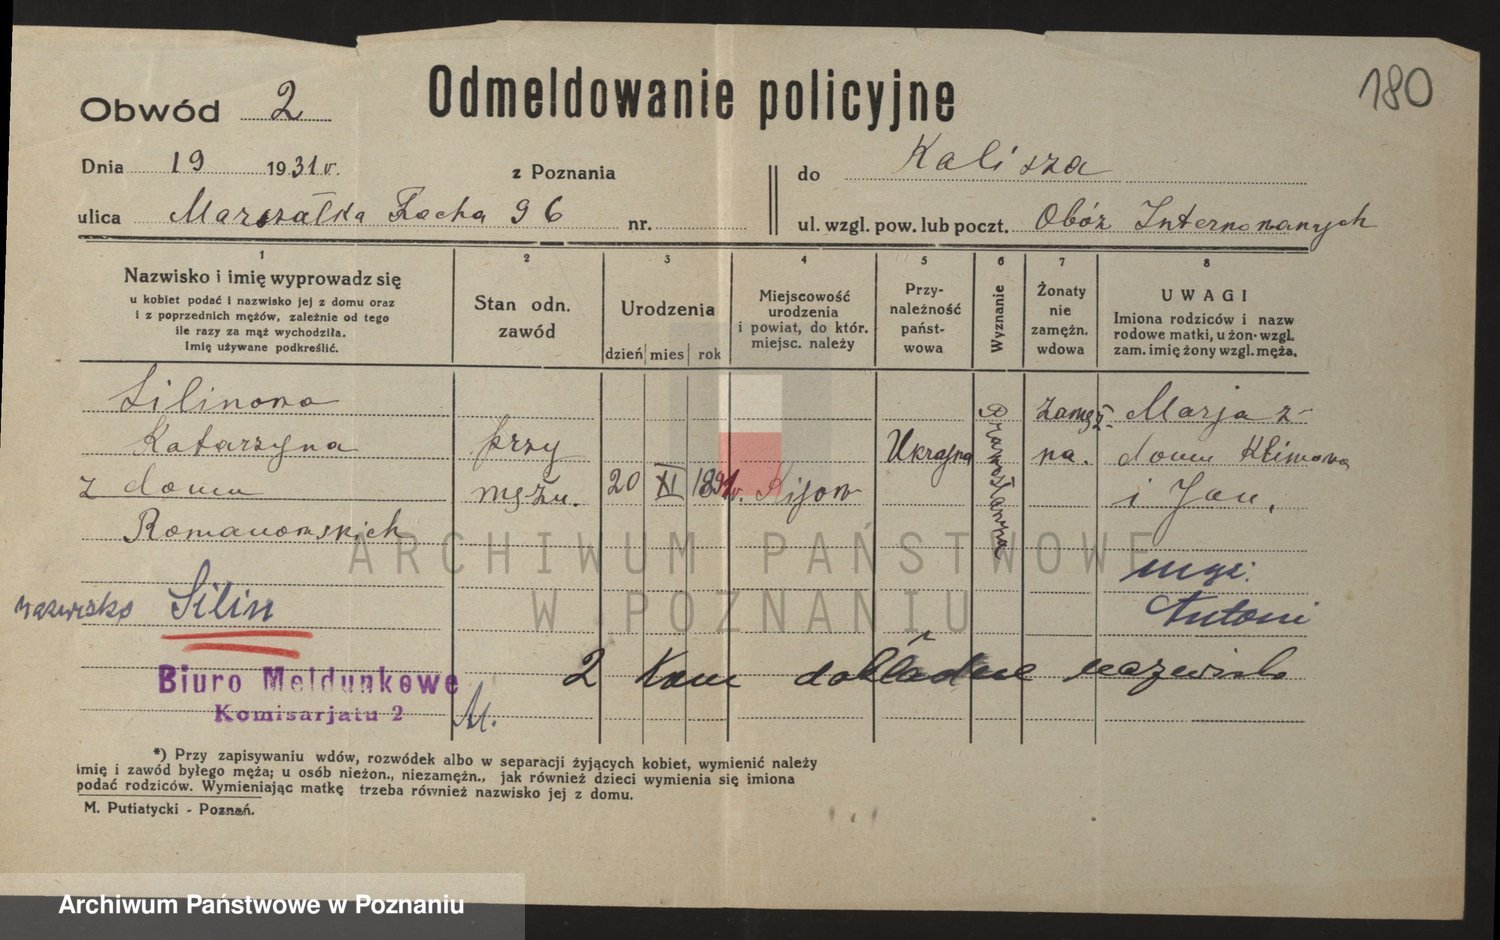 180
Odmeldowanie policyjne
Obwód 2
Dnia 19 1931 r. z Poznania do Kalisza
ulica Marszałka Focha 96 nr. ul. wzgl. pow. lub poczt. Obóz Internowanych
1 2 3 4 5 6 7 8
Nazwisko i imię wyprowadz się
u kobiet podać i nazwisko jej z domu oraz
i z poprzednich mężów, zależnie od tego
ile razy za mąż wychodziła.
Imię używane podkreślić.
Stan odn.
zawód
Urodzenia
dzień mies rok
Miejscowość
urodzenia
i powiat, do któr.
miejsc. należy
Przy-
należność
państ-
wowa
Wyznanie
Żonaty
nie
zamężn.
wdowa
UWAGI
Imiona rodziców i nazw
rodowe matki, u żon· wzgl.
zam. imię żony wzgl. męża.
Silinowa
Katarzyna
z domu
Romanowskich
przy
mężu.
20 XI 1891 r. Kijow
Ukrajna
Prawosławna
Zamęż-
na.
Marja z-
domu Klimowa
i Jan.
mąż:
Antoni
nazwisko Silin
2 Kom dokładne nazwisko
Biuro Meldunkowe
Komisarjatu 2
M.
*) Przy zapisywaniu wdów, rozwódek albo w separacji żyjących kobiet, wymienić należy
imię i zawód byłego męża; u osób nieżon., niezamężn., jak również dzieci wymienia się imiona
podać rodziców. Wymieniając matkę trzeba również nazwisko jej z domu.
M. Putiatycki - Poznań.
ARCHIWUM PAŃSTWOWE
W POZNANIU
Archiwum Państwowe w Poznaniu